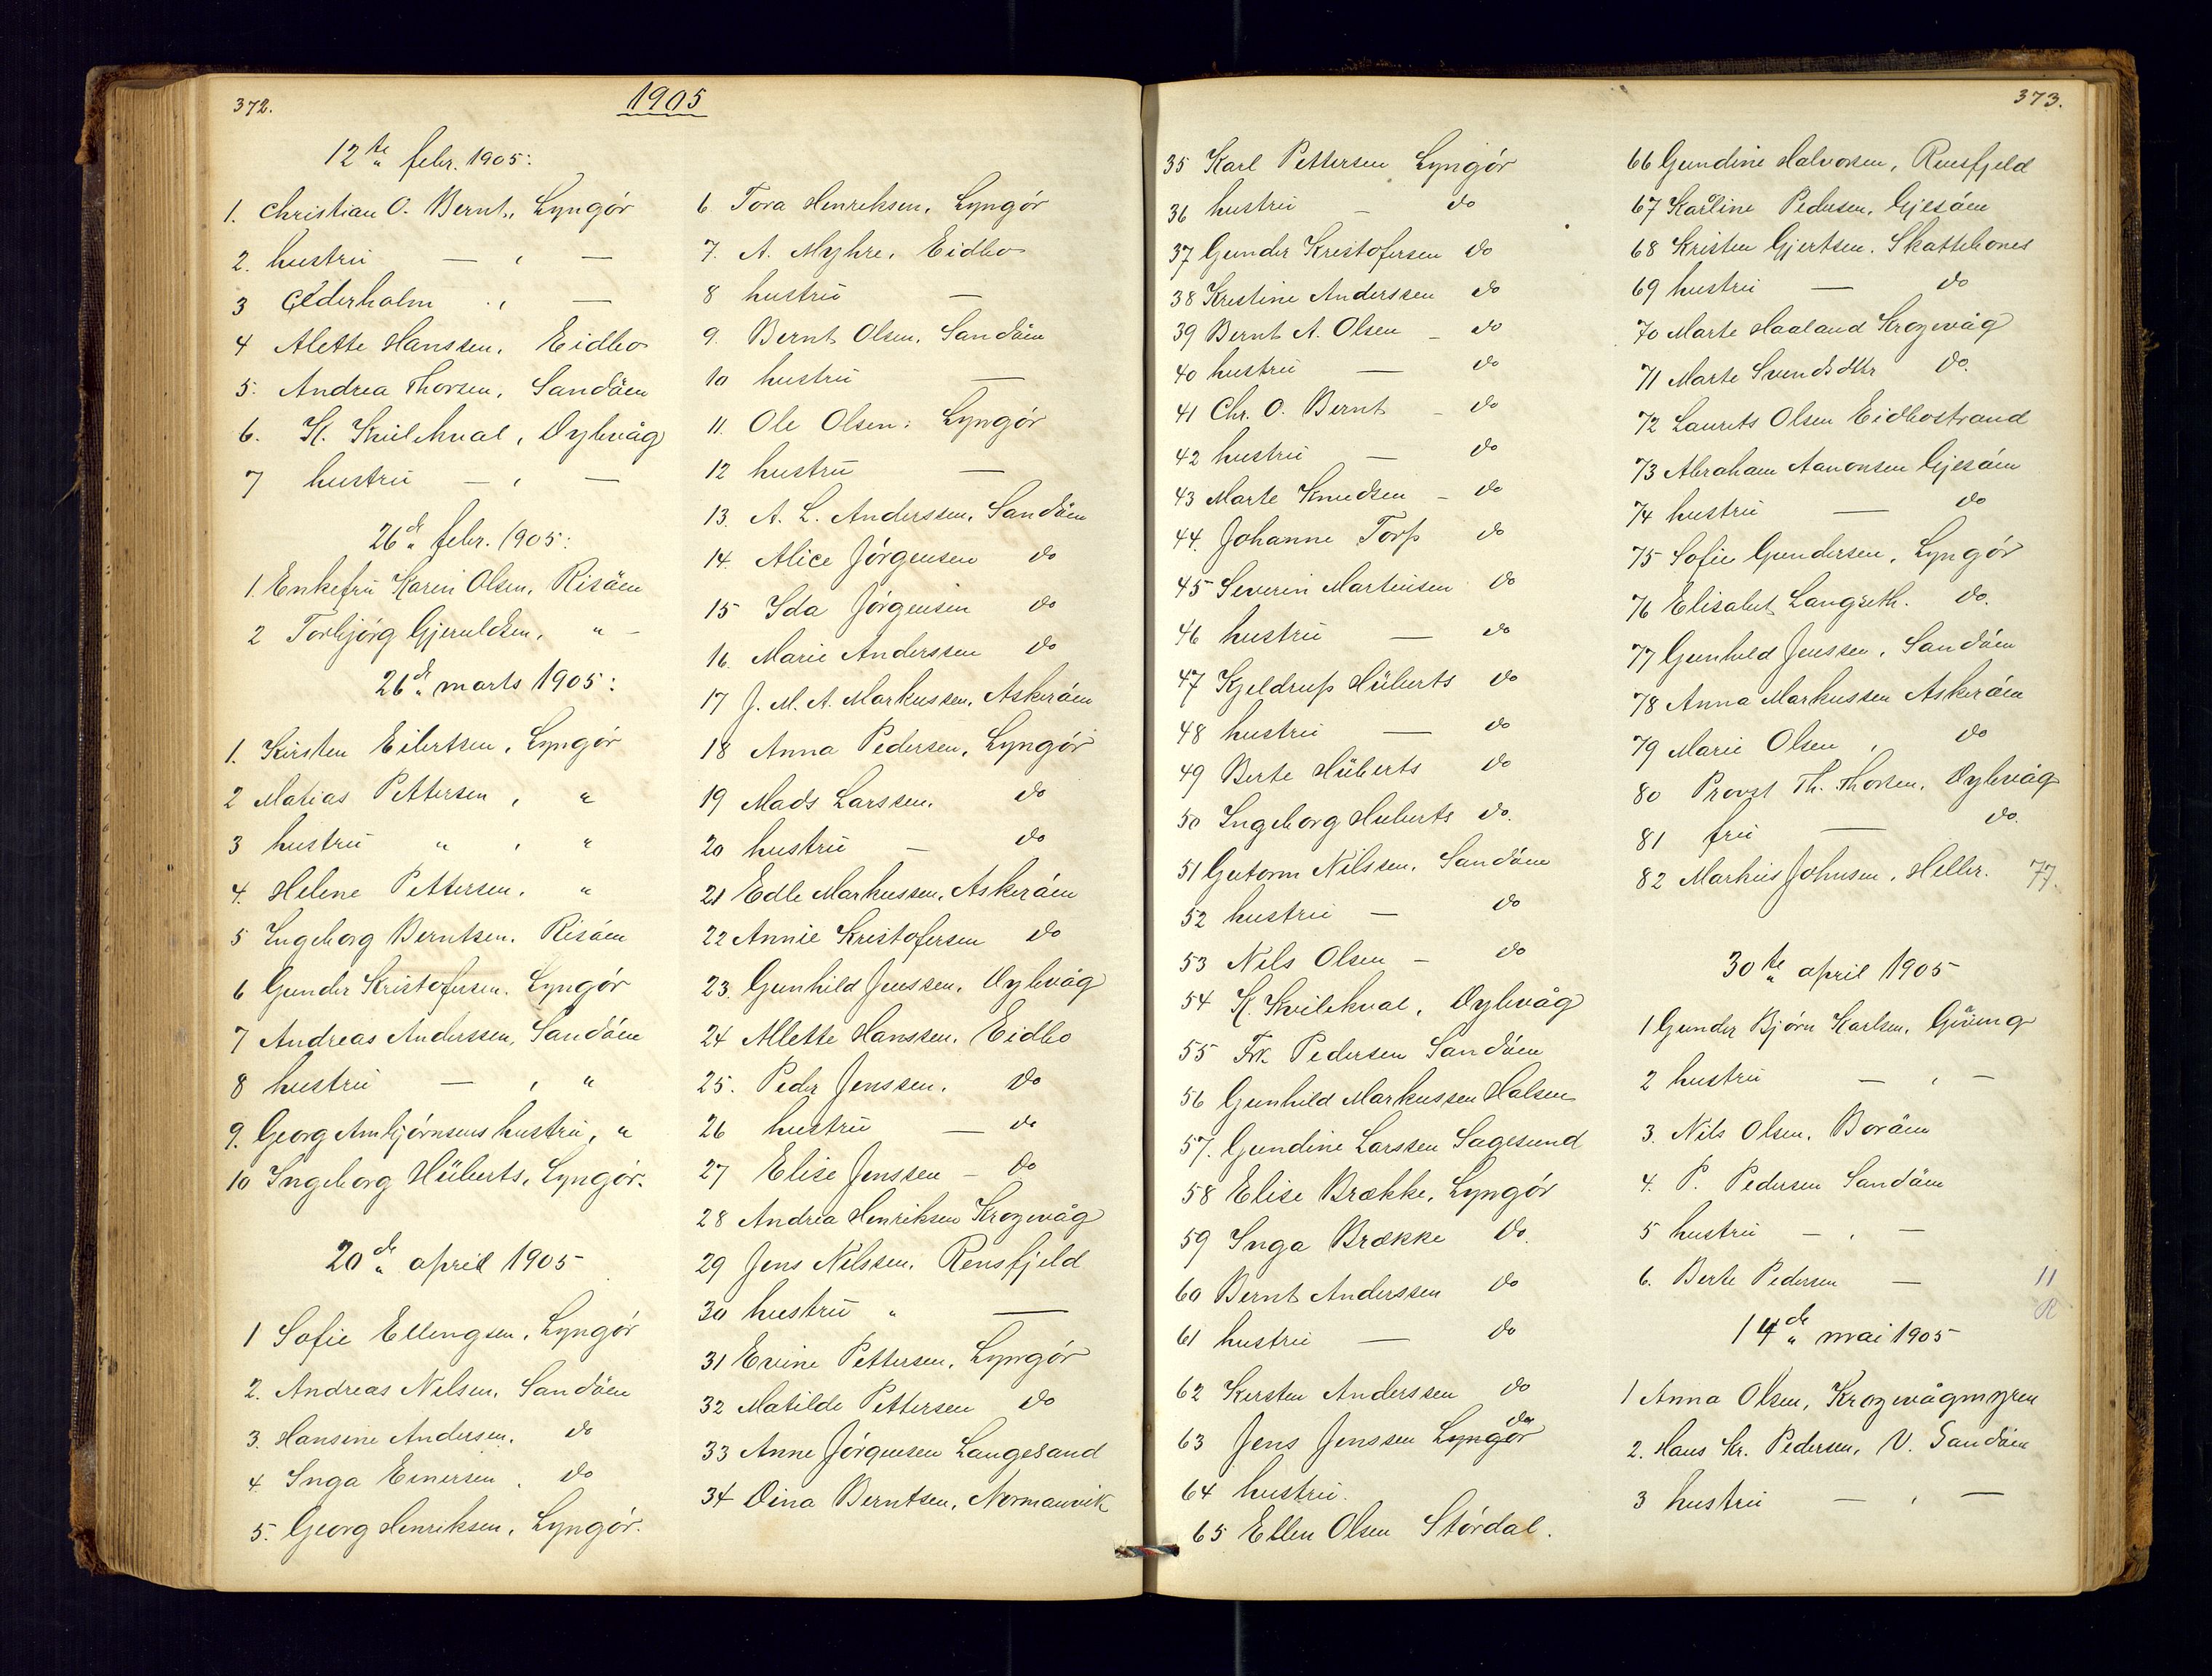 372.
1905
12te febr. 1905:
1. Christian O. Bernt, Lyngør
2. hustru — , —
3 Cederholm . , —
4 Alette Hanssen, Eidbo
5. Andrea Thorsen, Sandöen
6. K. Kvilekval, Dybvåg
7 hustru — , —
26de febr. 1905:
1. Enkefru Karen Olsen, Risöen
2 Torbjørg Gjeruldsen, " —
26de marts 1905:
1. Kirsten Eilertsen, Lyngør
2 Matias Pettersen, "
3 hustru " , "
4. Helene Pettersen, "
5 Ingeborg Berntsen, Risöen
6 Gunder Kristofersen, Lyngør
7 Andreas Anderssen, Sandöen
8 hustru — , "
9. Georg Arnbjørnsens hustru, "
10 Ingeborg Hüberts, Lyngør.
20de april 1905
1 Sofie Ellingsen, Lyngør
2. Andreas Nilsen, Sandöen
3. Hansine Andersen, do
4 Inga Einersen, do
5. Georg Henriksen, Lyngør.
6 Tora Henriksen, Lyngør
7. A. Myhre, Eidbo
8 hustru —
9. Bernt Olsen, Sandöen
10 hustru —
11. Ole Olsen, Lyngør
12 hustru —
13. A. L. Anderssen, Sandöen
14. Alice Jørgensen do
15 Ida Jørgensen do
16. Marie Anderssen do
17 J. M. A. Markussen, Askeröen
18 Anna Pedersen, Lyngør
19 Mads Larssen, do
20 hustru — do
21 Edle Markussen, Askeröen
22 Annie Kristofersen do
23. Gunhild Jenssen, Dybvåg
24 Allette Hanssen, Eidbo
25. Peder Jenssen, do
26 hustru — do
27 Elise Jenssen — do
28 Andrea Henriksen Krogvåg
29 Jens Nilssen, Rensfjeld
30 hustru " —
31 Evine Pettersen, Lyngør
32 Matilde Pettersen do
33 Anne Jörgensen Langesand
34 Dina Berntsen, Normanvik
373.
35 Karl Pettersen Lyngør
36 hustru — do
37 Gunder Kristofersen do
38 Kristine Anderssen do
39 Bernt A. Olsen — do
40 hustru — do
41 Chr. O. Bernt — do
42 hustru — do
43 Marte Knudsen — do
44. Johanne Torp do
45 Severin Martinsen do
46 hustru — do
47 Kjeldrup Hüberts do
48 hustru — do
49 Berte Hüberts do
50 Ingeborg Huberts do.
51 Gutorm Nilssen, Sandöen
52 hustru — do
53 Nils Olsen — do
54 K. Kvilekval, Dybvåg
55 Frk. Pedersen Sandöen
56 Gunhild Markussen Halsen
57. Gundine Larssen Sagesund
58 Elise Brække, Lyngør
59 Inga Brække do.
60 Bernt Anderssen do
61 hustru — do
62 Kersten Anderssen do
63 Jens Jenssen Lyngør do
64 hustru.
65 Ellen Olsen Stördal.
66 Gundine Halvorsen, Rensfjeld
67 Karline Pedersen, Gjesöen
68 Kristen Gjertsen. Skattebones
69 hustru — do
70 Marte Haaland Krogvåg
71 Marte Svendsdtr do.
72 Laurits Olsen Eidbostrand
73 Abraham Aanonsen Gjesöen
74 hustru — do
75 Sofie Gundersen, Lyngør
76 Elisabet Langseth. do.
77 Gunhild Jenssen, Sandöen
78 Anna Markussen Askeröen
79 Marie Olsen , do
80 Provst Th. Thorsen, Dybvåg
81 fru — do.
82 Markus Johnsen, Heller. 77.
30te april 1905
1 Gunder Bjørn Karlsen, Gjeving
2 hustru — , —
3. Nils Olsen, Boröen
4. P. Pedersen Sandöen
5 hustru — , —
6. Berte Pedersen — 11
14de mai 1905
1 Anna Olsen, Krogvågmyren
2. Hans Kr. Pedersen, V. Sandöen
3 hustru — , —